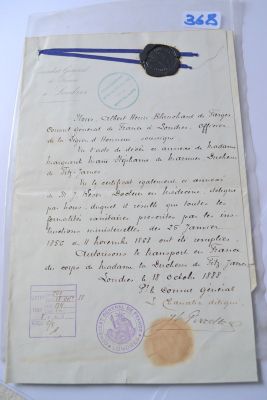 368
Consulat Général
de France
à Londres
Nous Albert Henri Blanchard de Farges
Consul Général de France à Londres, Officier
de la Légion d'Honneur soussigné
Vu l'acte de décès ci annexé de Madame
Marguerite Marie Stéphanie de Marmier Duchesse
de Fitz-James.
Vu le certificat également ci annexé
de M. J. Rose Docteur en médecine, délégué
par nous, duquel il résulte que toutes les
formalités sanitaires prescrites par les ins-
tructions ministérielles des 25 Janvier
1856 & 11 Novembre 1868 ont été remplies.
Autorisons le transport en France
du corps de Madame la Duchesse de Fitz-James
Londres le 18 Octobre 1888
Pr le Consul Général
Le Chancelier délégué
CONSULAT GENERAL DE FRANCE
LONDRES